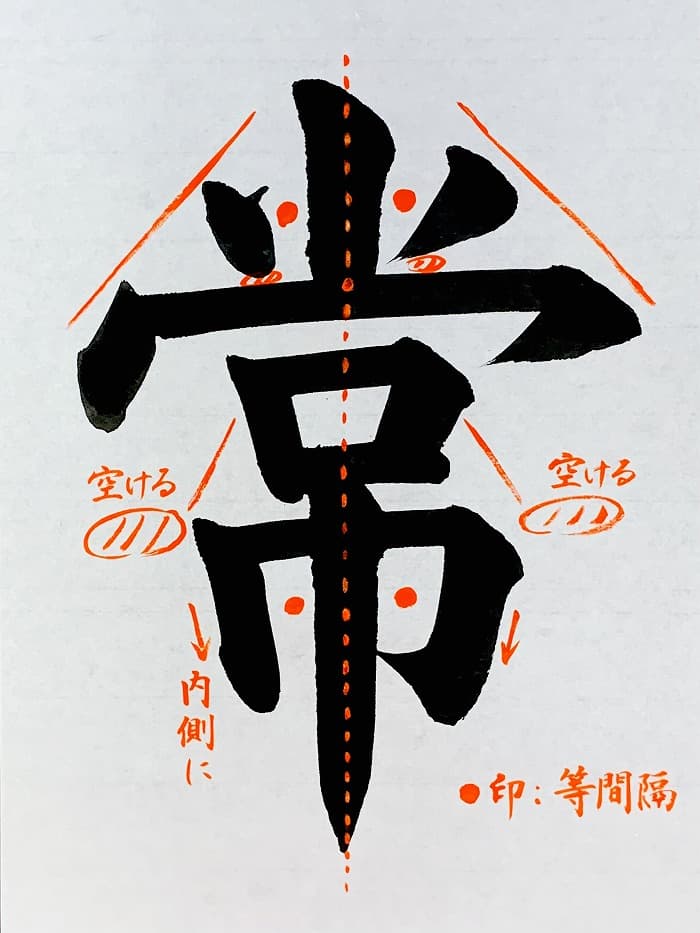 常
空ける
空ける
内側に
●印：等間隔